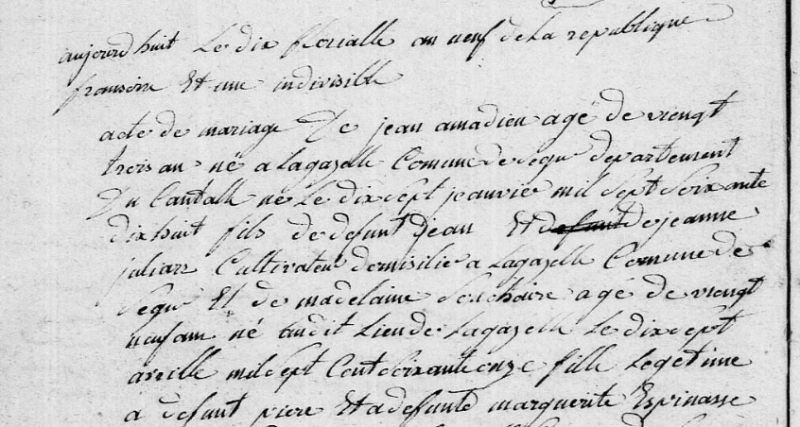 aujourdhuit Le dix florialle an neuf de La republique
fransoise Et une indivisible
acte de mariage De jean amadieu agé de viengt
trois an né a Lagazelle Comune de segu departement
Du Cantall né Le dixsept jeanvie mil sept Soixante
dixhuit fils de defunt jean Et defunt de jeanne
julian Cultivateur domisilié a Lagazelle Comune de
segu Et de madelaine agé de viengt
neuf an né audit Lieu de Lagazelle Le dixsept
avrille mil sept Cent Soixante onze fille Legetime
a defunt piere Et a defunte marguerite Espinasse